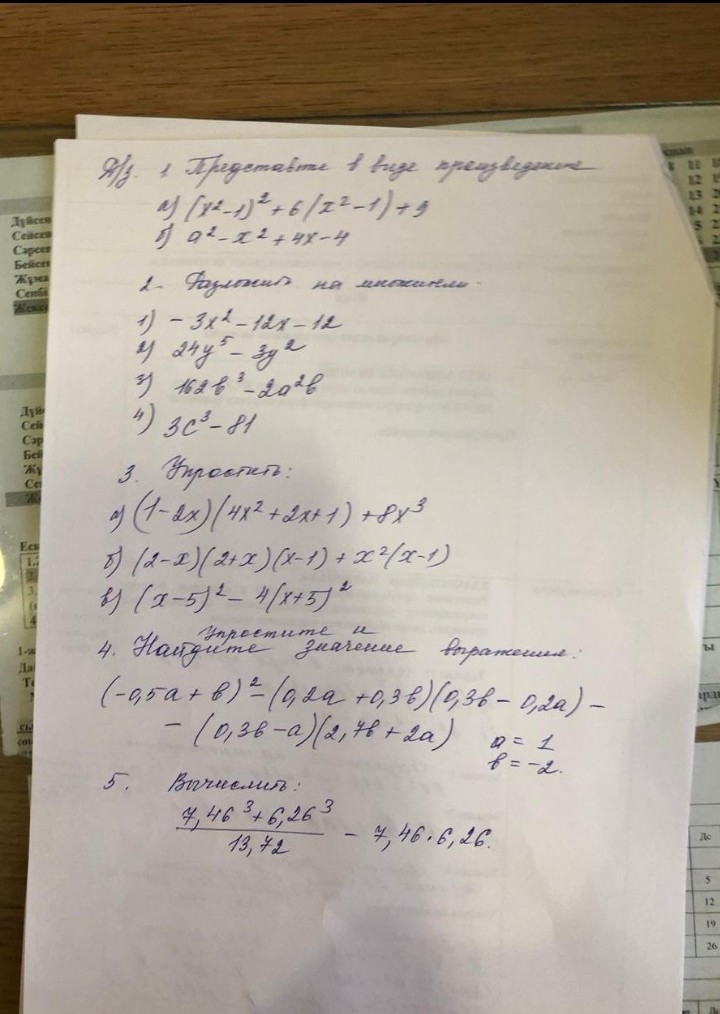 Д/з. 1 Представте в виде произведение
а) (x²-1)² + 6(x²-1)+9
б) a² - x² + 4x - 4
2. Разложить на множители:
1) -3x² - 12x - 12
2) 24y⁵ - 3y²
3) 162b³ - 2a²b
4) 3c³ - 81
3. Упростить:
а) (1-2x)(4x²+2x+1)+8x³
б) (2-x)(2+x)(x-1)+x²(x-1)
в) (x-5)² - 4(x+5)²
упростите и
4. Найдите значение выражения:
(-0,5a+b)² - (0,2a+0,3b)(0,3b-0,2a) -
- (0,3b-a)(2,7b+2a) a = 1
b = -2.
5. Вычислить:
7,46³+6,26³
13,72 - 7,46·6,26.
Дүйсен
Сейсен
Сәрсен
Бейсен
Жұма
Сенбі
Жексе
Дүй
Сей
Сәр
Бей
Жұ
Сен
Же
Дс
5
12
19
26